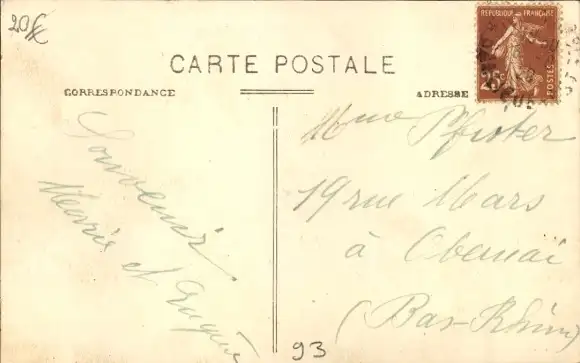 20€
REPUBLIQUE FRANÇAISE
25c
POSTES
CARTE POSTALE
CORRESPONDANCE
ADRESSE
Souvenir
Marie et
Mme Pfister
19 rue Mars
à Obernai
(Bas-Rhin)
93